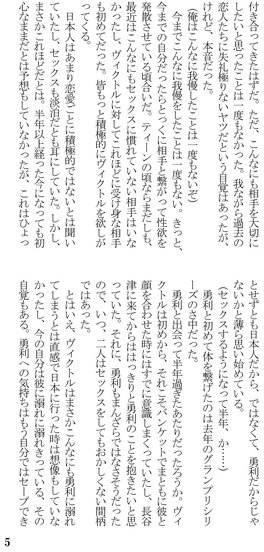 付き合ってきたはずだ。ただ、こんなにも相手を大切に
したいと思ったことは一度もなかった。我ながら過去の
恋人たちに失礼極りないヤツだという自覚はあったが、
けれど、本音だった。
(俺はこんなに我慢したことは一度もないぞ)
今までこんなに我慢をしたことは一度もない。きっと、
今までの自分だったらとっくに相手と繋がって性欲を
発散させている頃合いだ。ティーンの頃ならまだしも、
最近はこんなにもセックスに慣れていない相手はいな
かったし、ヴィクトルに対してこれほどに受け身な相手
も初めてだった。皆もっと積極的にヴィクトルを欲しが
ってくる。
日本人はあまり恋愛ごとに積極的ではないとは聞い
ていたし、セックスも淡泊だとも耳にしていた。しかし、
まさかこれほどだとは。半年以上経った今になっても初
心なままだとは予想もしていなかったが、これはひょっ
とせずとも日本人だから、ではなくて、勇利だからじゃ
ないかと薄ら思い始めている。
(セックスするようになって半年、か……)
勇利と初めて体を繋げたのは去年のグランプリシリ
ーズのさ中だった。
勇利と出会って半年過ぎたあたりだったろうか。ヴィ
クトルは初めから、それこそバンケットでまともに彼と
顔を合わせた時にはすでに意識しまくっていたし、長谷
津に来てからははっきりと勇利のことを抱きたいと思
っていた。それに、勇利もまんざらではなさそうだった
ので、いつ、二人はセックスをしてもおかしくない間柄
ではあった。
とはいえ、ヴィクトルはまさかこんなにも勇利に溺れ
てしまうとは直感で日本に行った時は想像もしていな
かったし、今の自分は彼に溺れに溺れきっている、その
自覚もある。勇利への気持ちはもう自分ではセーブでき
5